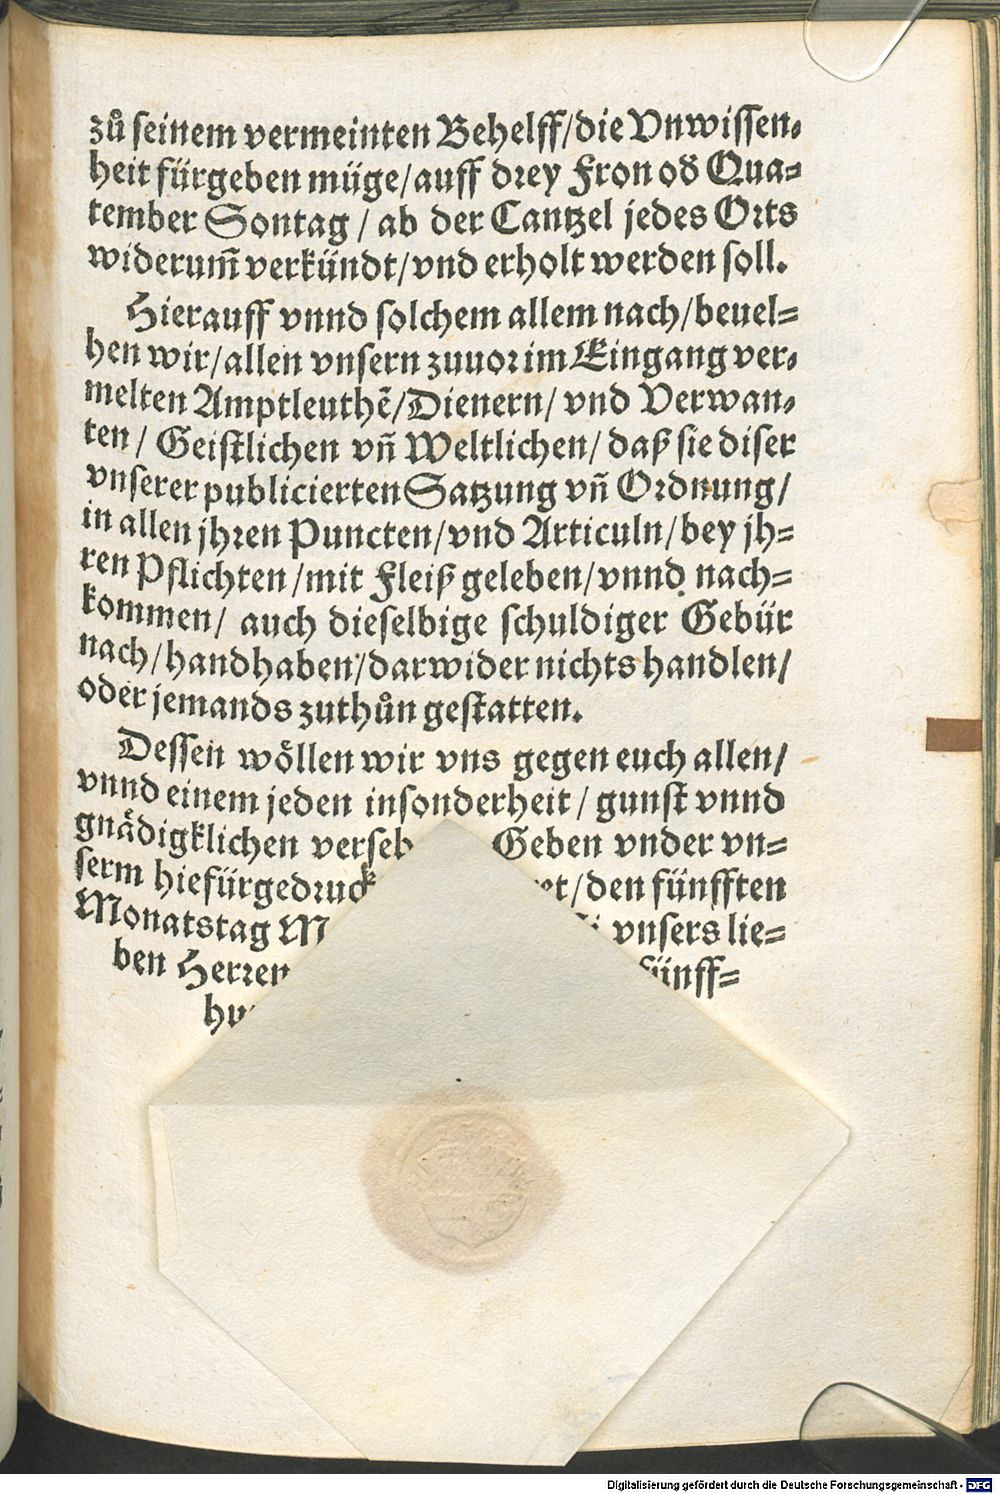 zů seinem vermeinten Behelff/die Vnwissen-
heit fürgeben müge/auff drey Fron oď Qua-
tember Sontag / ab der Cantzel jedes Orts
widerum̃ verkündt/vnd erholt werden soll.
Hierauff vnnd solchem allem nach/beuel-
hen wir/allen vnsern zuuor im Eingang ver-
melten Amptleuthẽ/Dienern/ vnd Verwan-
ten/ Geistlichen vñ Weltlichen/ daß sie diser
vnserer publicierten Satzung vñ Ordnung/
in allen jhren Puncten/vnd Articuln/bey jh-
ren Pflichten/mit Fleiß geleben/vnnd nach-
kommen/ auch dieselbige schuldiger Gebür
nach/handhaben/darwider nichts handlen/
oder jemands zuthůn gestatten.
Dessen wöllen wir vns gegen euch allen/
vnnd einem jeden insonderheit/ gunst vnnd
gnädigklichen Geben vnder vn-
serm den fünfften
Monatstag vnsers lie-
ben Herren fünff-
Digitalisierung gefördert durch die Deutsche Forschungsgemeinschaft - DFG